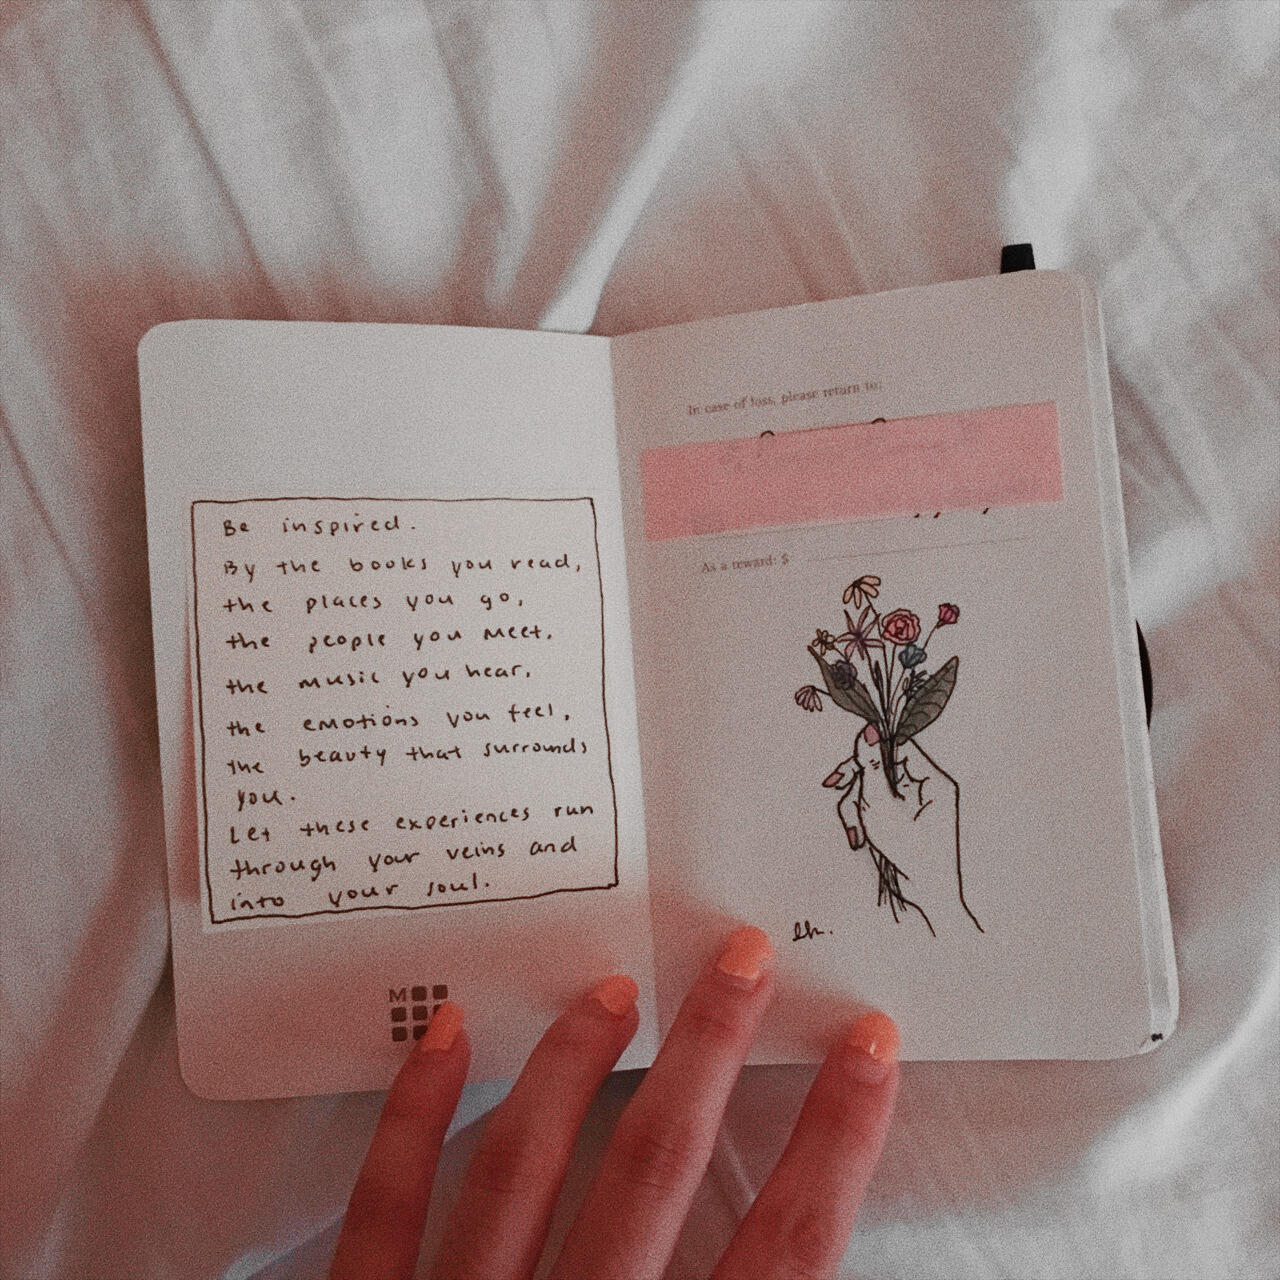 Be inspired.
By the books you read,
the places you go,
the people you meet,
the music you hear,
the emotions you feel,
the beauty that surrounds
you.
Let these experiences run
through your veins and
into your soul.
M
In case of loss, please return to:
As a reward: $
lh.